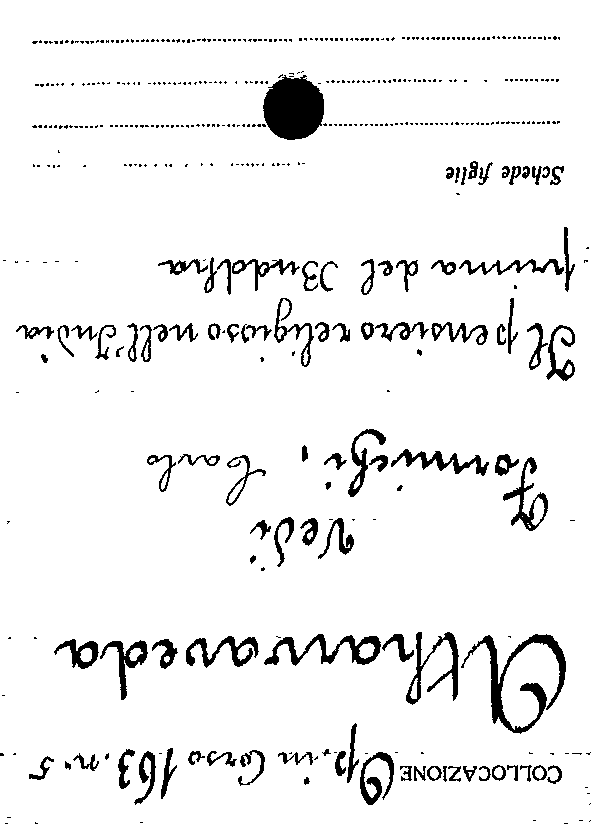 COLLOCAZIONE Op. in Corso 163. n° 5
Atharvaveda
Vedi
Formichi, Carlo
Il pensiero religioso nell'India
prima del Buddha
Schede figlie